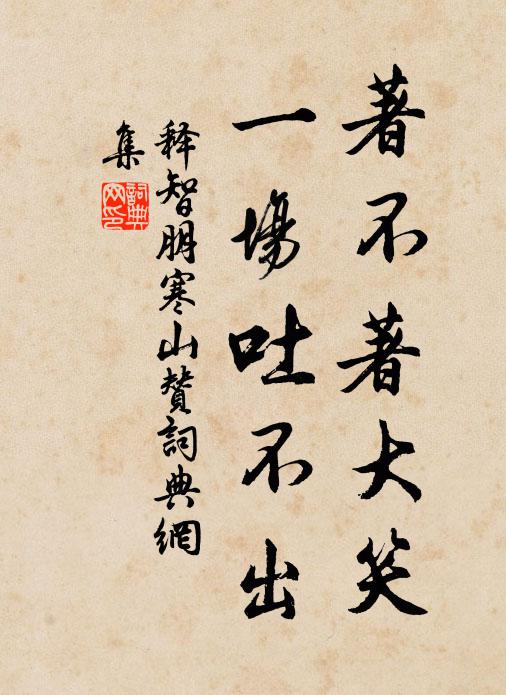 著不著大笑
一場吐不出
释智朋寒山赞詞典網
集
詞典網印